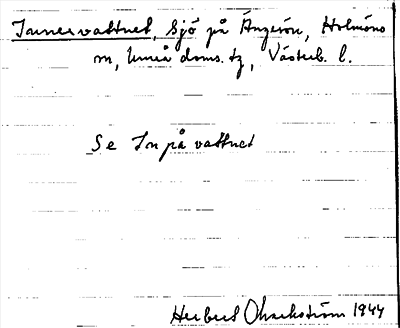 Innervattnet, Sjö på Ängesön, Holmöns
sn, Umeå doms. tg, Västerb. l.
Se Inpåvattnet
Herbert 1944